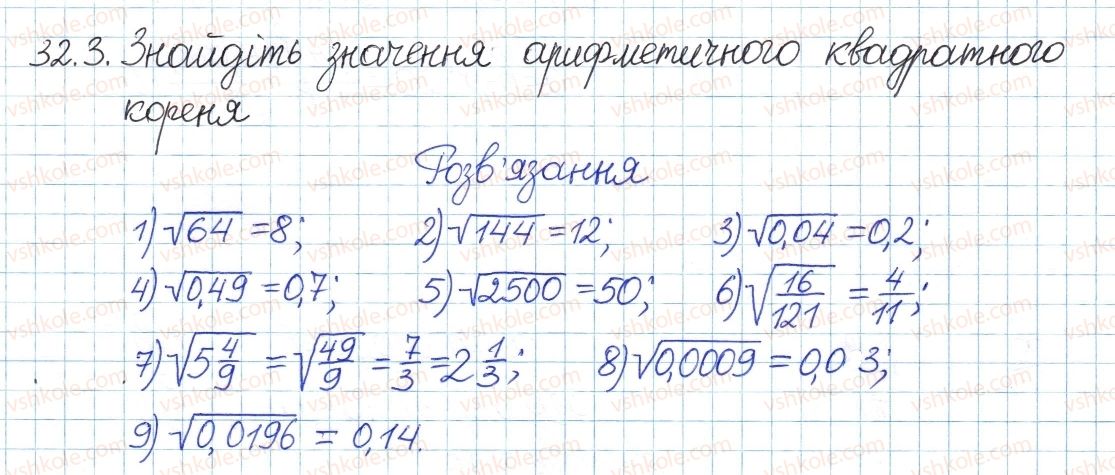 32.3. Знайдіть значення арифметичного квадратного
кореня
Розв'язання
1) √64 = 8; 2) √144 = 12; 3) √0,04 = 0,2;
4) √0,49 = 0,7; 5) √2500 = 50; 6) √(16/121) = 4/11;
7) √(5 4/9) = √(49/9) = 7/3 = 2 1/3; 8) √0,0009 = 0,03;
9) √0,0196 = 0,14.
vshkole.com